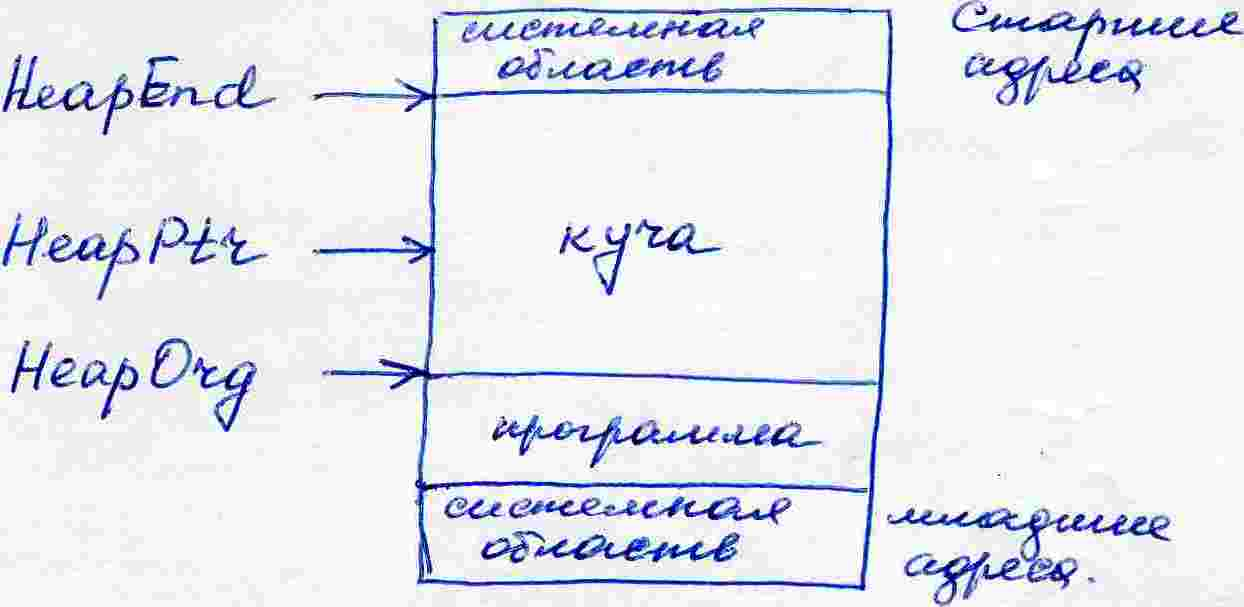 системная
область
Старшие
адреса
HeapEnd
куча
HeapPtr
HeapOrg
программа
системная
область
младшие
адреса.